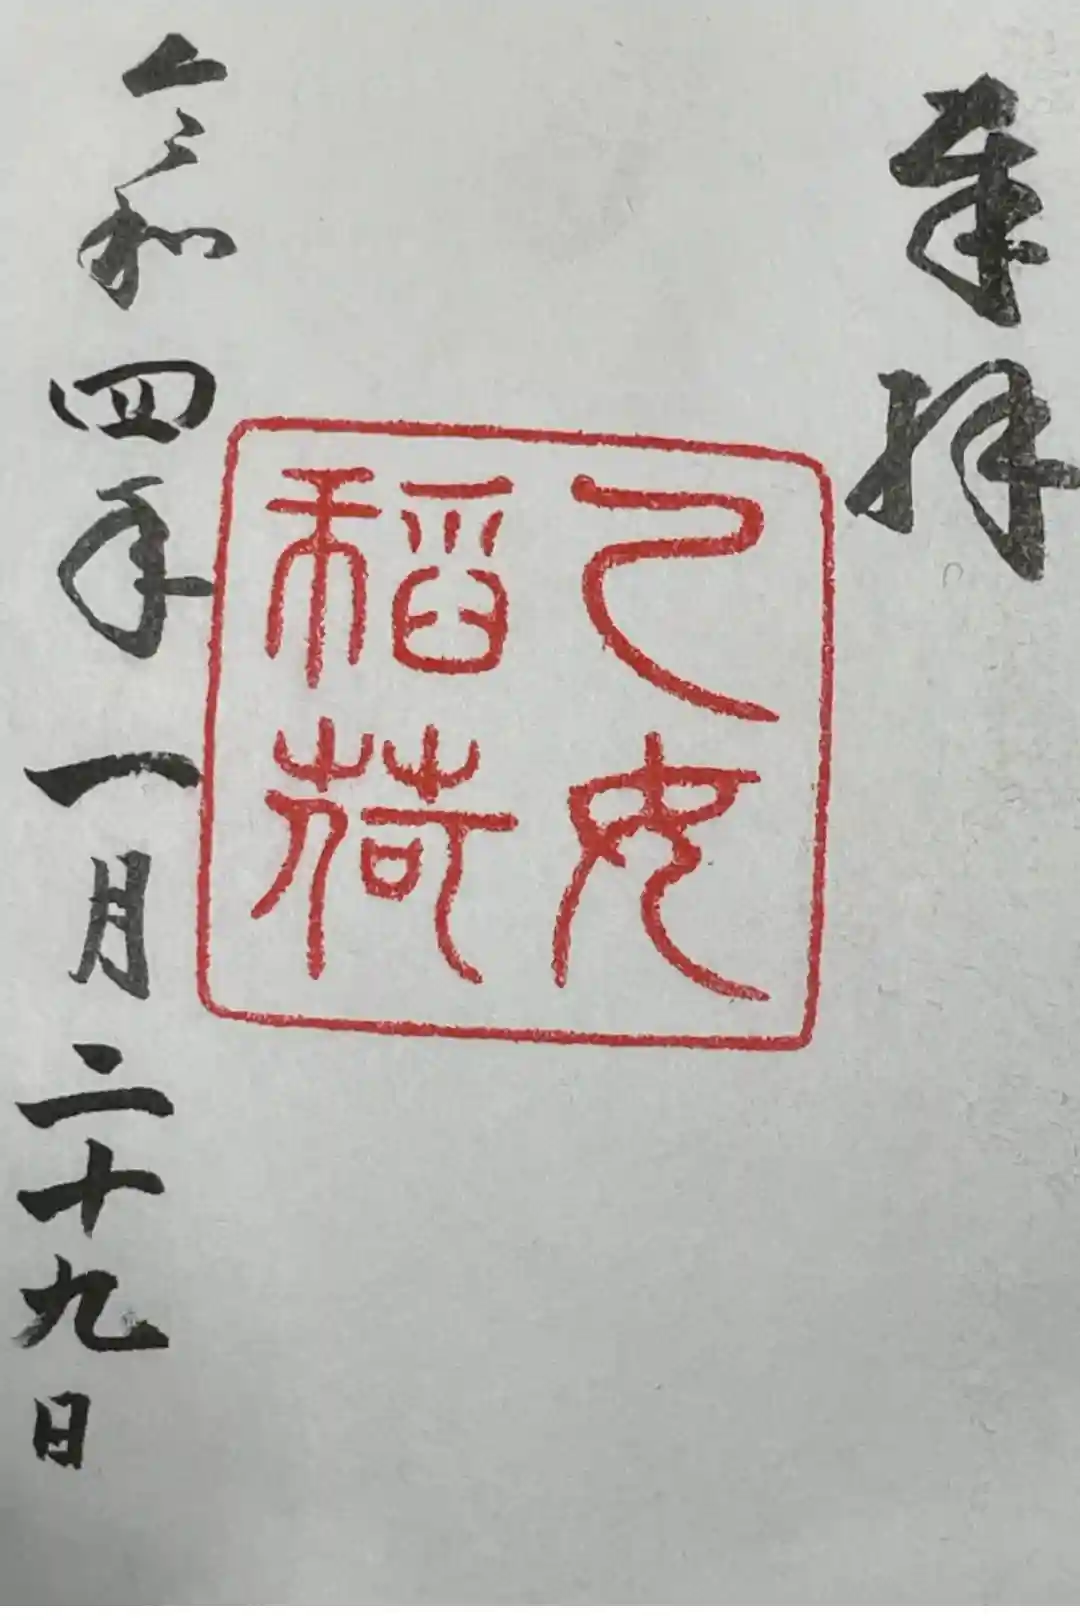 奉拝
乙女
稲荷
令和四年一月二十九日